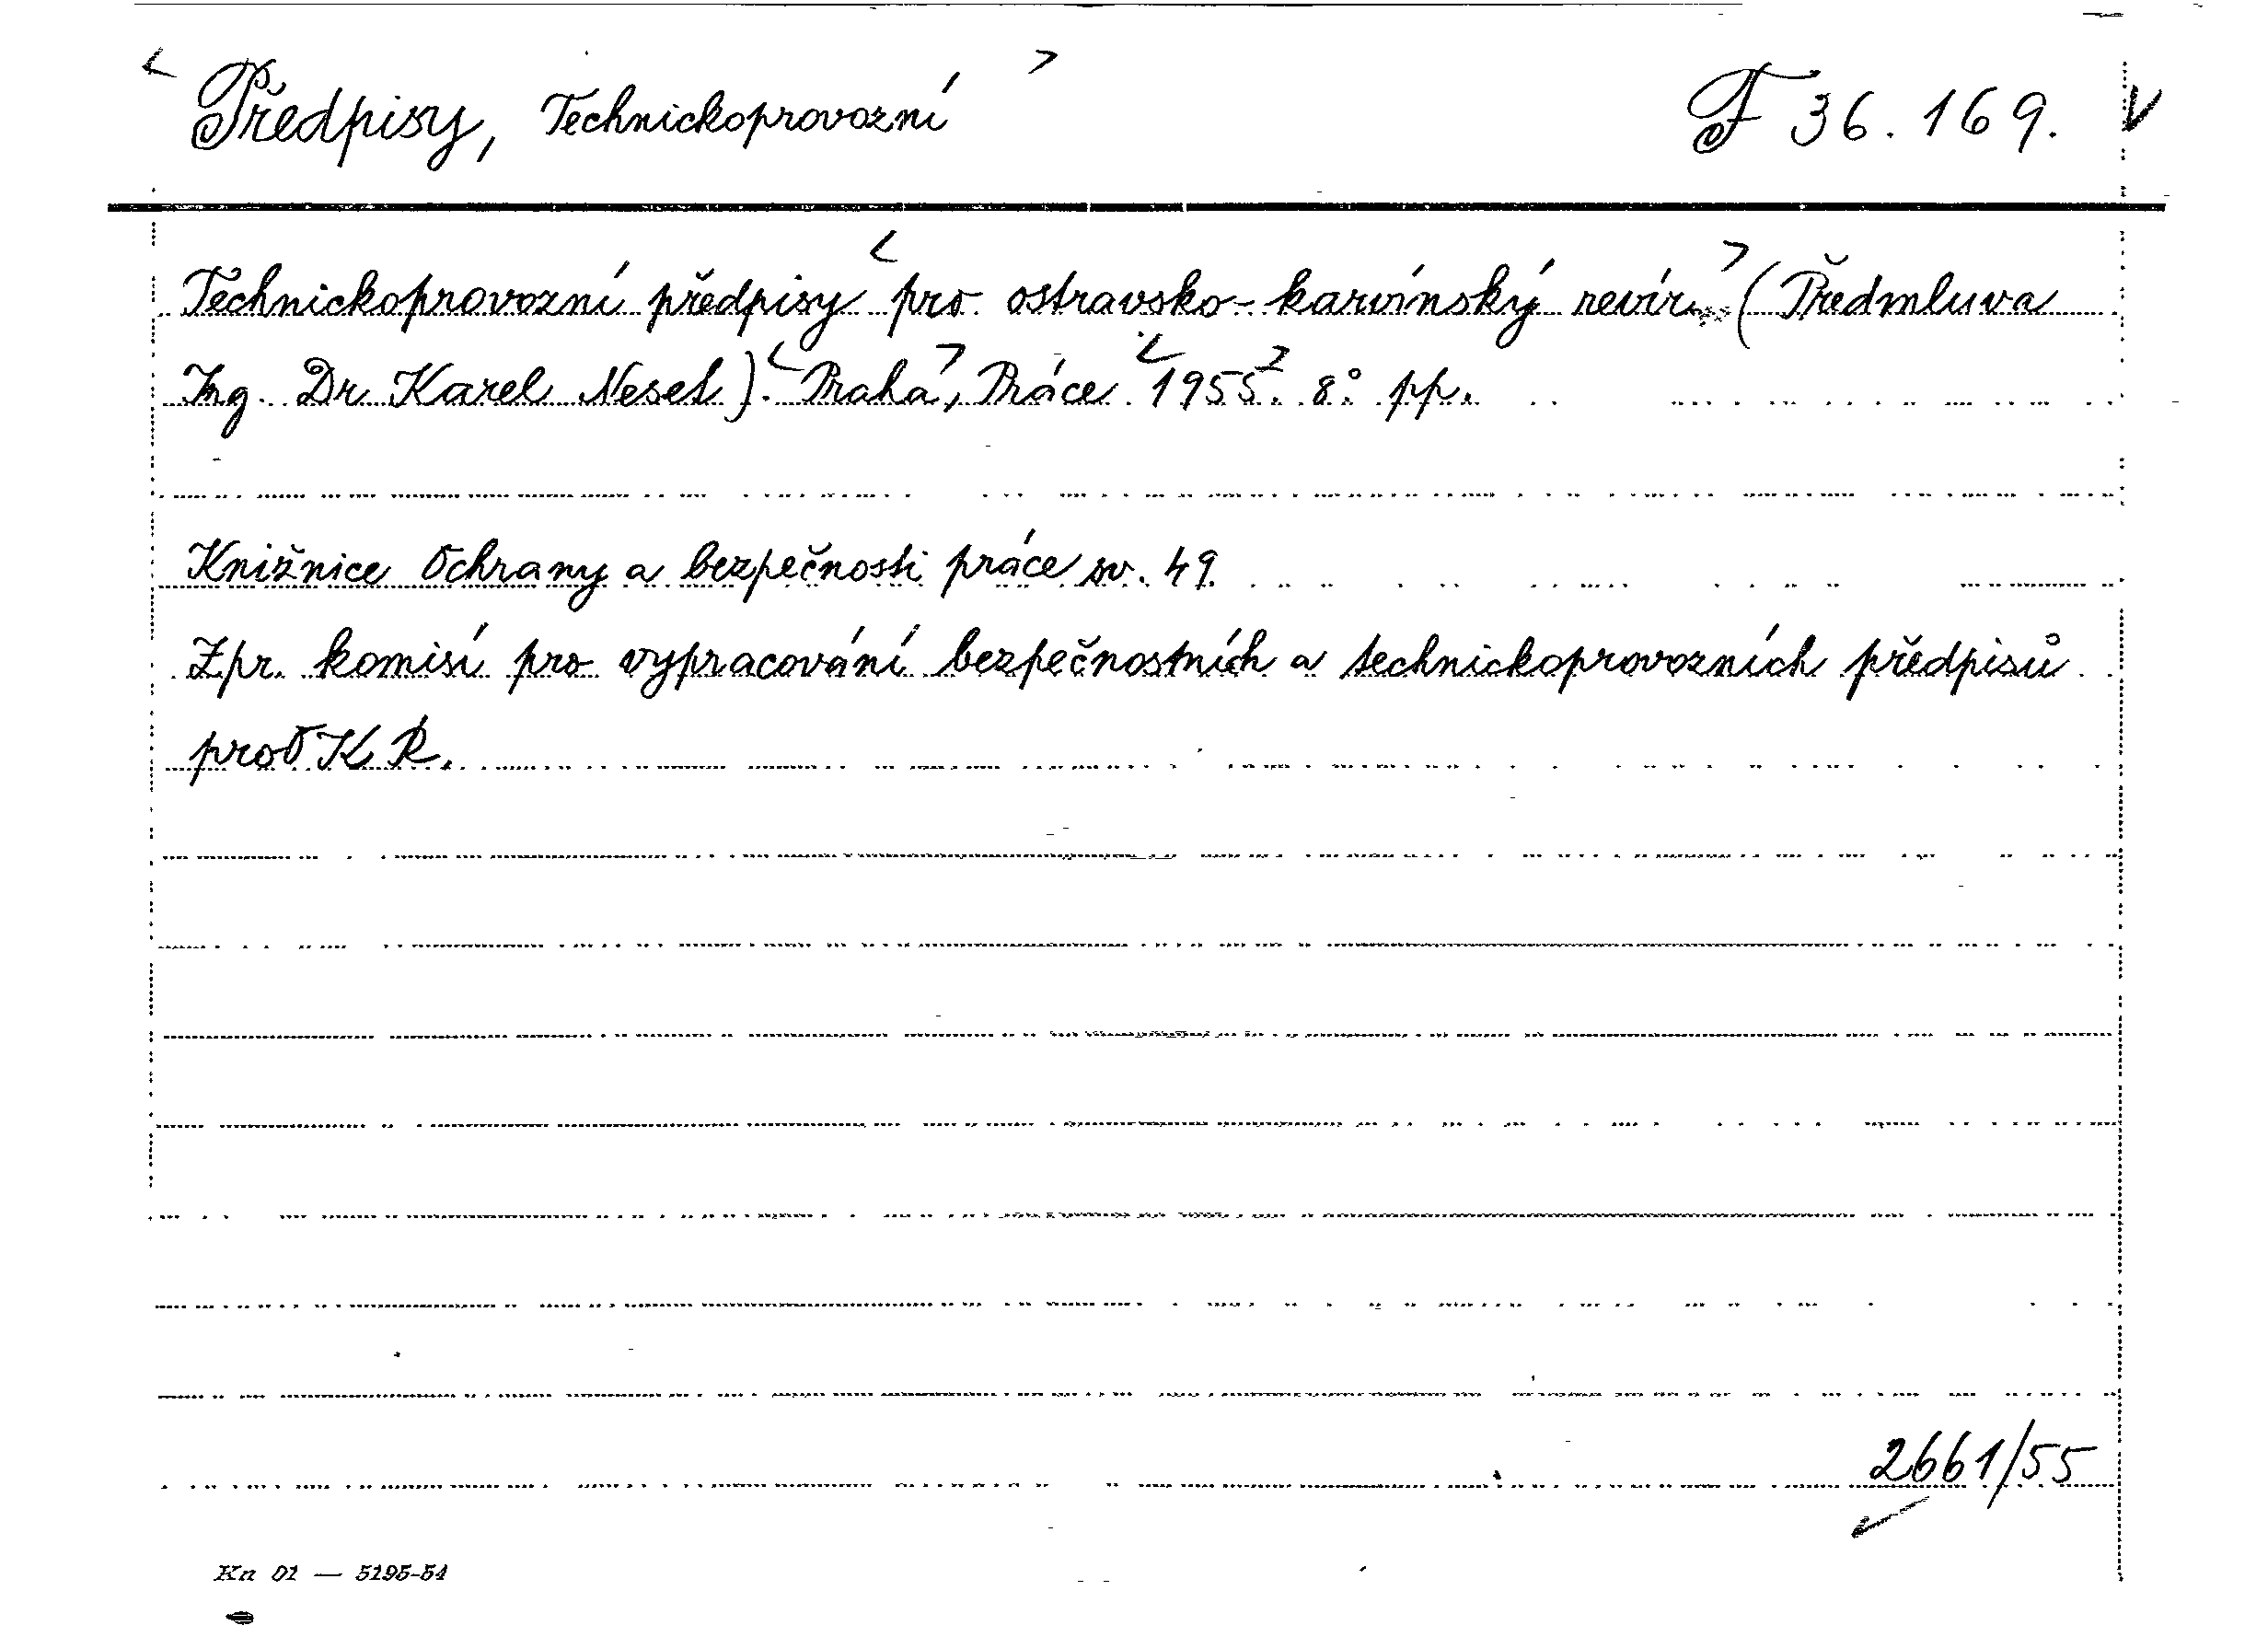 < Předpisy, Technickoprovozní > F 36.169. V
Technickoprovozní předpisy < pro ostravsko-karvínský revír > (Předmluva
Ing. Dr. Karel Neset). < Praha >, Práce < 1955 >. 8° pp.
Knižnice Ochrany a bezpečnosti práce sv. 49.
Zpr. komisí pro vypracování bezpečnostních a technickoprovozních předpisů
pro OKR.
2661/55
Kn 01 — 5195-54